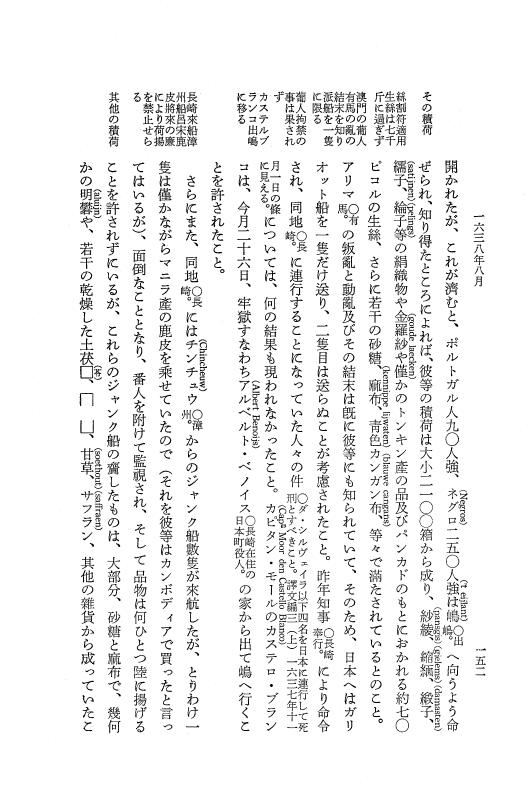 一六三八年八月
一五二
その積荷
絲割符適用
生絲は七千
斤に過ぎず
澳門の葡人
有馬の亂の
結末を知り
派船を一隻
に限る
葡人拘禁の
事は果され
ず
カステルブ
ランコ出嶋
に移る
長崎來船漳
州船呂宋鹿
皮將來の廉
により荷揚
を禁止せら
る
其他の積荷
開かれたが、これが濟むと、ポルトガル人九〇人強、ネグロ(Negros)二五〇人強は嶋(t' eijlant)〇出嶋。へ向うよう命
ぜられ、知り得たところによれば、彼等の積荷は大小二一〇〇箱から成り、紗綾(panags)、縮緬(gielems)、緞子(damasten)、
繻子(satijnen)、綸子(pelings)等の絹織物や金羅紗(goude laecken)や僅かのトンキン產の品及びパンカドのもとにおかれる約七〇
ピコルの生絲、さらに若干の砂糖、麻布(kennippe lijwaten)、靑色カンガン布(blauwe cangans)、等々で滿たされているとのこと。
アリマ〇有馬。の叛亂と動亂及びその結末は旣に彼等にも知られていて、そのため、日本へはガリ
オット船を一隻だけ送り、二隻目は送らぬことが考慮されたこと。昨年知事〇長崎奉行。により命令
され、同地〇長崎。に連行することになっていた人々の件〇ダ・シルヴェイラ以下四名を日本に連行して死刑とすべきこと。譯文編三(上)一六三七年十一
月一日の條に見える。については、何の結果も現われなかったこと。カピタン・モールのカステロ・ブラン(Capn Moor den Castello Blanco)
コは、今月二十六日、牢獄すなわちアルベルト・ベノイス(Albert Benojs)〇長崎在住の日本町役人。の家から出て嶋へ行くこ
とを許されたこと。
さらにまた、同地〇長崎。にはチンチュウ(Chincheuw)〇漳州。からのジャンク船數隻が來航したが、とりわけ一
隻は僅かながらマニラ產の鹿皮を乘せていたので(それを彼等はカンボディアで買ったと言っ
てはいるが)、面倒なこととなり、番人を附けて監視され、そして品物は何ひとつ陸に揚げる
ことを許されずにいるが、これらのジャンク船の齎したものは、大部分、砂糖と麻布で、幾何
かの明礬(aluijn)や、若干の乾燥した土茯□(苓)、□□、甘草(soethout)、サフラン(saffraen)、其他の雜貨から成っていたこ